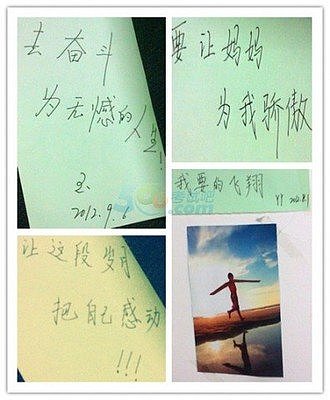 去奋斗
为无憾的人生!
玉
2012.9.6
要让妈妈
为我骄傲
我要的飞翔
让这段岁月
把自己感动
!!!